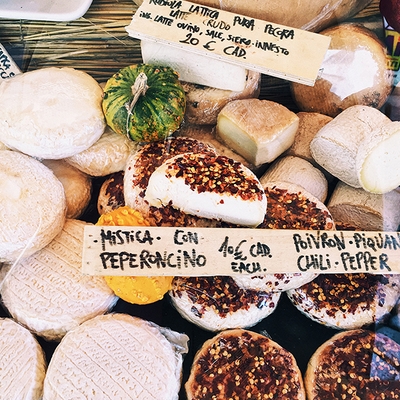 ROBIOLA LATTICA PURA PECORA
LATTE CRUDO
ING. LATTE OVINO, SALE, SIERO-INNESTO
20 € CAD.
MISTICA · CON
PEPERONCINO
10€ CAD.
EACH.
POIVRON · PIQUAN
CHILI · PEPPER